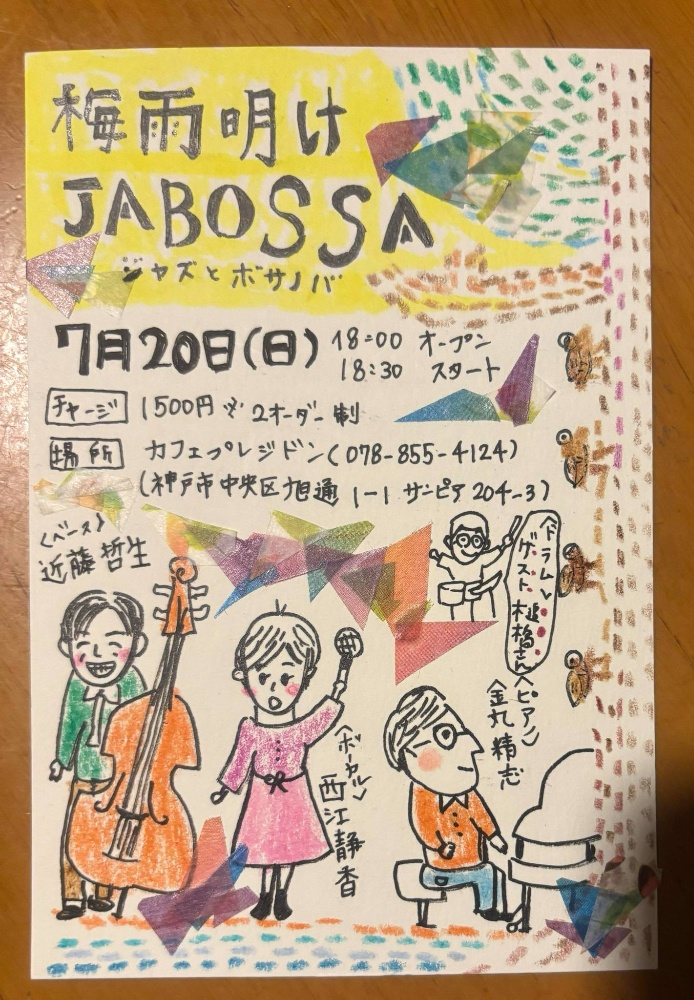 梅雨明け
JABOSSA
ジャズとボサノバ
7月20日(日) 18:00 オープン
18:30 スタート
チャージ 1500円 ※2オーダー制
場所 カフェプレジドン(078-855-4124)
(神戸市中央区旭通 1-1 サンピア204-3)
〈ベース〉
近藤哲生
〈ドラム〉
ゲスト
橋さん
〈ピアノ〉
金丸精志
〈ボーカル〉
西江静香